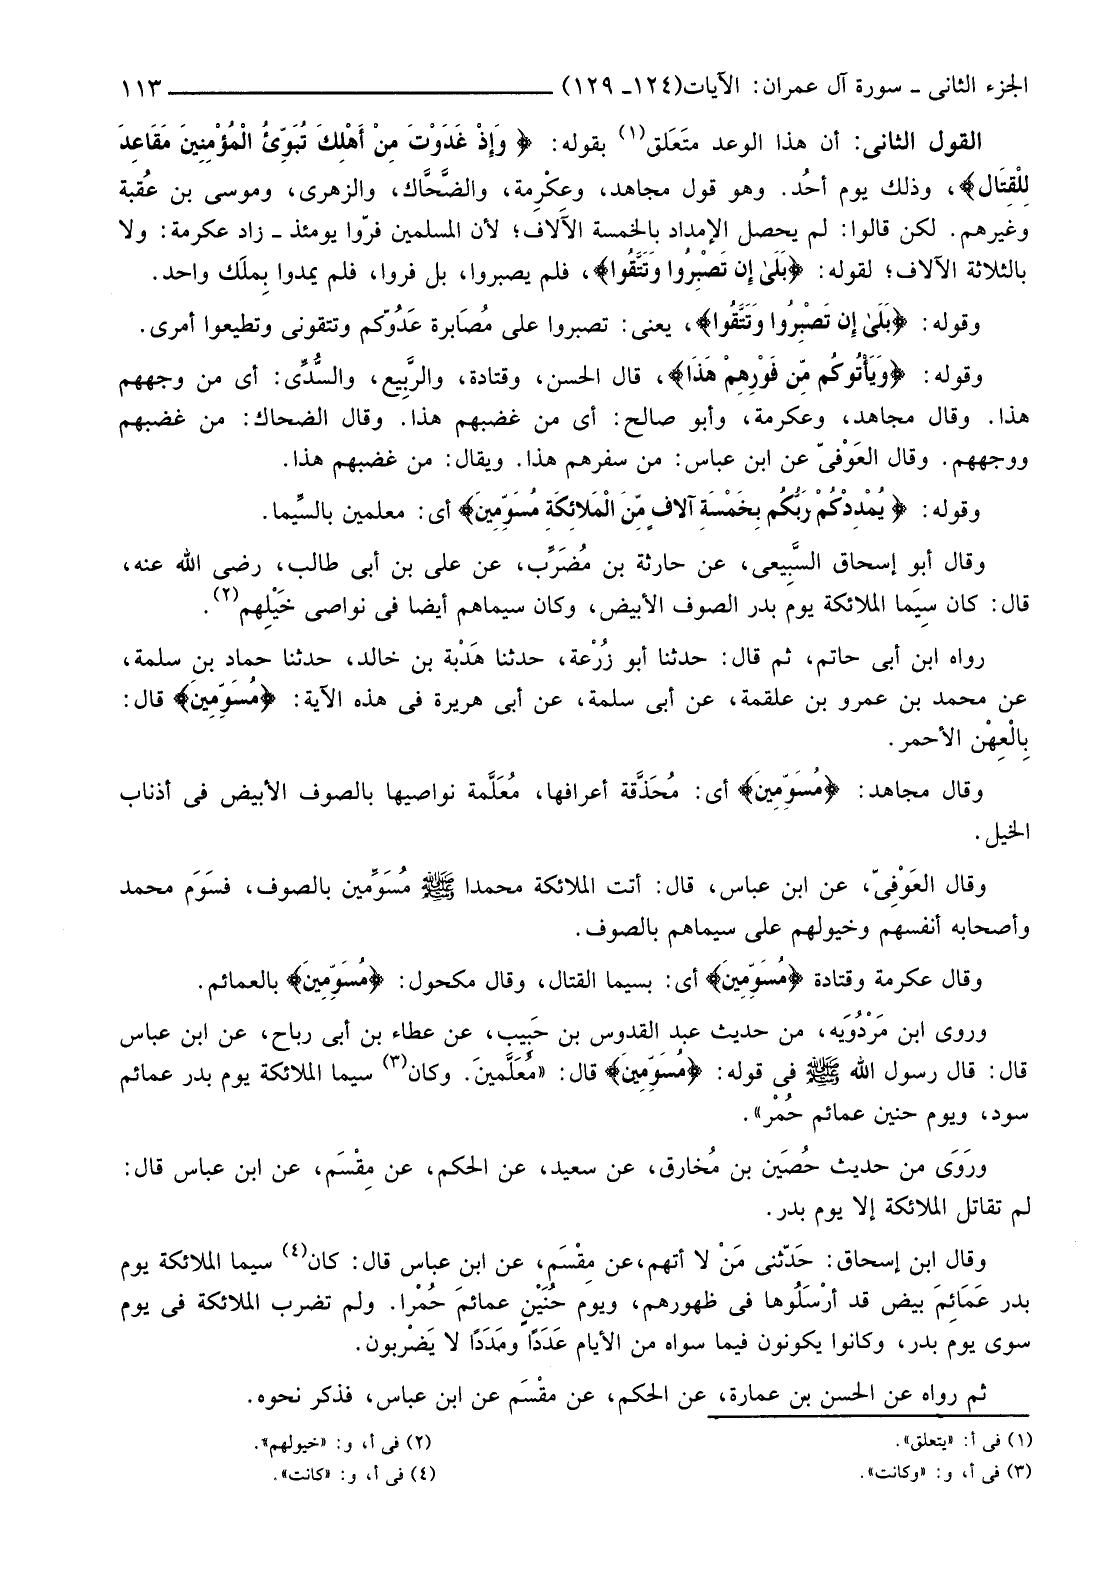 الجزء الثانى ـ سورة آل عمران: الآيات(١٢٤ـ ١٢٩) ١١٣
القول الثانى: أن هذا الوعد مَتَعَلق(١) بقوله: ﴿ وَإِذْ غَدَوْتَ مِنْ أَهْلِكَ تُبَوِّئُ الْمُؤْمِنِينَ مَقَاعِدَ
لِلْقِتَالِ﴾، وذلك يوم أحُد. وهو قول مجاهد، وعِكْرِمة، والضَّحَّاك، والزهرى، وموسى بن عُقبة
وغيرهم. لكن قالوا: لم يحصل الإمداد بالخمسة الآلاف؛ لأن المسلمين فرّوا يومئذ ـ زاد عكرمة: ولا
بالثلاثة الآلاف؛ لقوله: ﴿بَلَىٰ إِن تَصْبِرُوا وَتَتَّقُوا﴾، فلم يصبروا، بل فروا، فلم يمدوا بِملَك واحد.
وقوله: ﴿بَلَىٰ إِن تَصْبِرُوا وَتَتَّقُوا﴾، يعنى: تصبروا على مُصَابرة عَدُوّكم وتتقونى وتطيعوا أمرى.
وقوله: ﴿وَيَأْتُوكُم مِّن فَوْرِهِمْ هَذَا﴾، قال الحسن، وقتادة، والرَّبِيع، والسُّدِّى: أى من وجههم
هذا. وقال مجاهد، وعكرمة، وأبو صالح: أى من غضبهم هذا. وقال الضحاك: من غضبهم
ووجههم. وقال العَوْفىّ عن ابن عباس: من سفرهم هذا. ويقال: من غضبهم هذا.
وقوله: ﴿ يُمْدِدْكُمْ رَبُّكُم بِخَمْسَةِ آلافٍ مِّنَ الْمَلائِكَةِ مُسَوِّمِينَ﴾ أى: معلمين بالسِّيما.
وقال أبو إسحاق السَّبِيعى، عن حارثة بن مُضَرِّب، عن على بن أبى طالب، رضى الله عنه،
قال: كان سِيَما الملائكة يوم بدر الصوف الأبيض، وكان سيماهم أيضا فى نواصى خَيْلِهم(٢).
رواه ابن أبى حاتم، ثم قال: حدثنا أبو زُرْعة، حدثنا هَدْبة بن خالد، حدثنا حماد بن سلمة،
عن محمد بن عمرو بن علقمة، عن أبى سلمة، عن أبى هريرة فى هذه الآية: ﴿مُسَوِّمِينَ﴾ قال:
بِالْعِهْن الأحمر.
وقال مجاهد: ﴿مُسَوِّمِينَ﴾ أى: مُحَذَّقة أعرافها، مُعَلَّمة نواصيها بالصوف الأبيض فى أذناب
الخيل.
وقال العَوْفِىّ، عن ابن عباس، قال: أتت الملائكة محمدا ﷺ مُسَوِّمين بالصوف، فسَوَم محمد
وأصحابه أنفسهم وخيولهم على سيماهم بالصوف.
وقال عكرمة وقتادة ﴿مُسَوِّمِينَ﴾ أى: بسيما القتال، وقال مكحول: ﴿مُسَوِّمِينَ﴾ بالعمائم.
وروى ابن مَرْدُوَيه، من حديث عبد القدوس بن حَبِيب، عن عطاء بن أبى رباح، عن ابن عباس
قال: قال رسول الله ﷺ فى قوله: ﴿مُسَوِّمِينَ﴾ قال: «مُعَلَّمينَ. وكان(٣) سيما الملائكة يوم بدر عمائم
سود، ويوم حنين عمائم حُمْر».
ورَوَى من حديث حُصَين بن مُخارق، عن سعيد، عن الحكم، عن مِقْسَم، عن ابن عباس قال:
لم تقاتل الملائكة إلا يوم بدر.
وقال ابن إسحاق: حَدّثنى مَنْ لا أتهم،عن مِقْسَم، عن ابن عباس قال: كان(٤) سيما الملائكة يوم
بدر عَمَائِمَ بيض قد أرْسَلُوها فى ظهورهم، ويوم حُنَيْنٍ عمائمَ حُمْرا. ولم تضرب الملائكة فى يوم
سوى يوم بدر، وكانوا يكونون فيما سواه من الأيام عَدَدًا ومَدَدًا لا يَضْربون.
ثم رواه عن الحسن بن عمارة، عن الحكم، عن مقْسَم عن ابن عباس، فذكر نحوه.
(١) فى أ: «يتعلق». (٢) فى أ، و: «خيولهم».
(٣) فى أ، و: «وكانت». (٤) فى أ، و: «كانت».